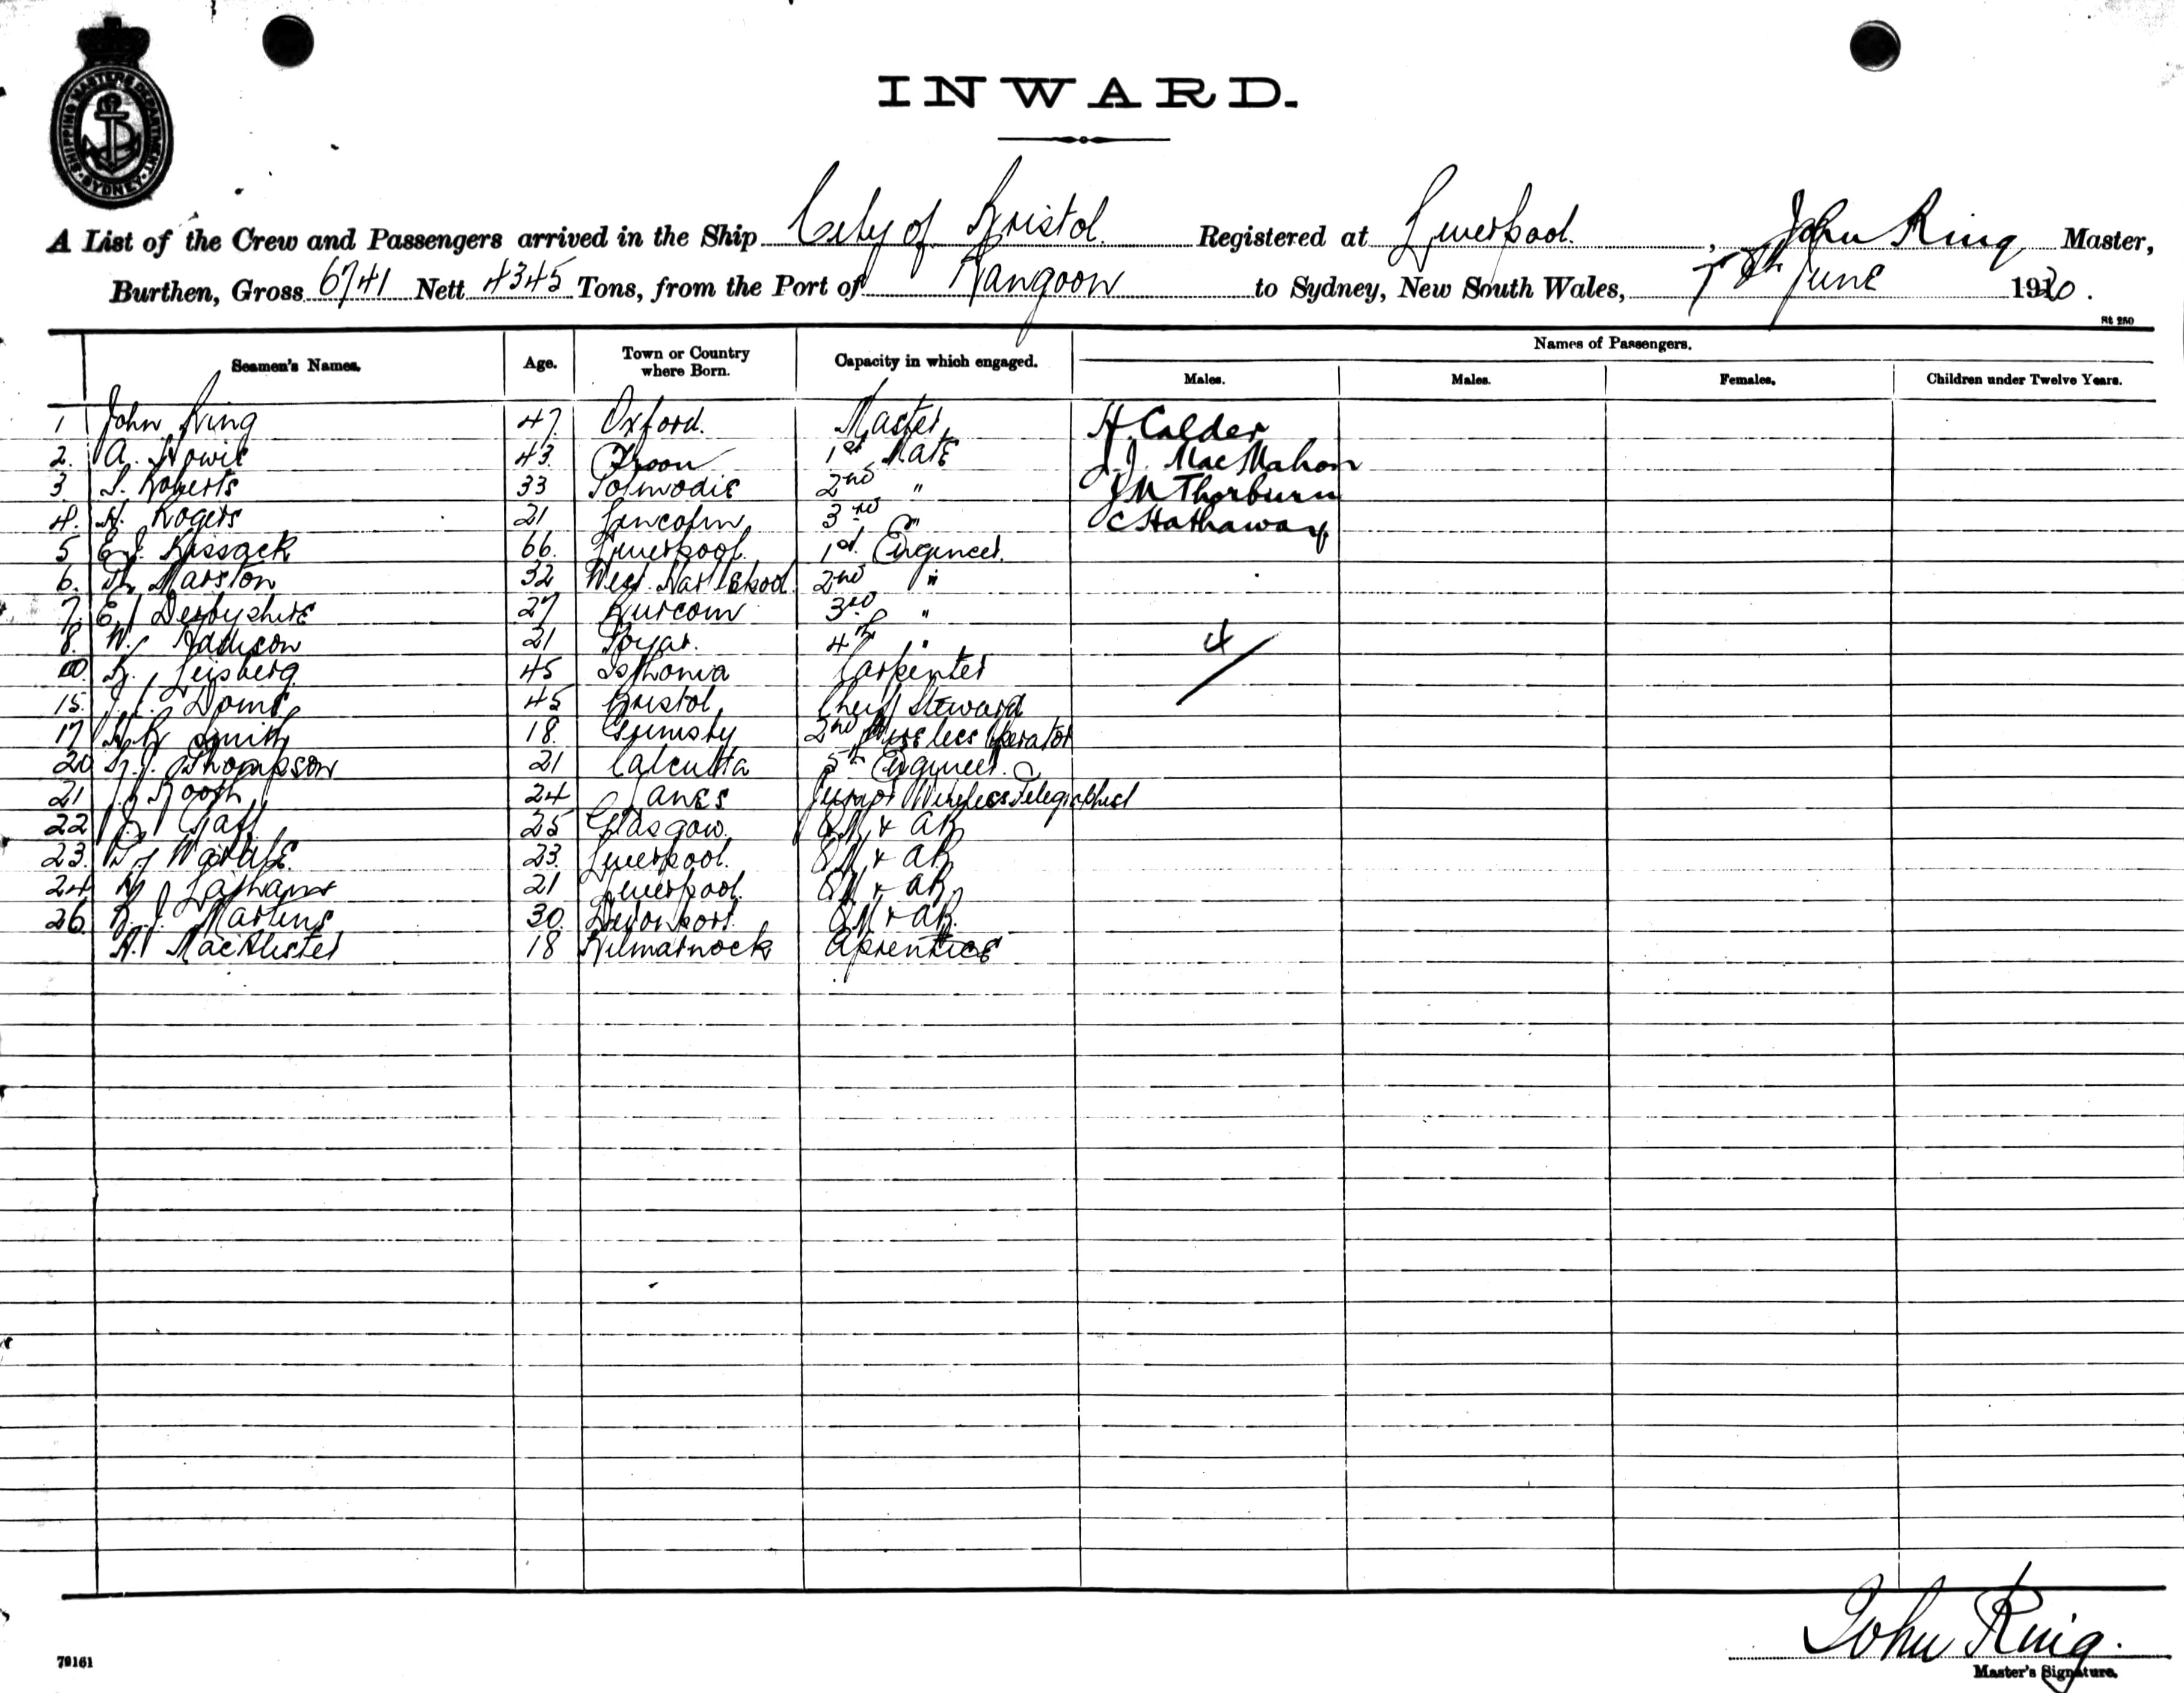 SHIPPING MASTERS DEPARTMENT SYDNEY
INWARD.
A List of the Crew and Passengers arrived in the Ship City of Bristol. Registered at Liverpool. , John King Master,
Burthen, Gross 6741 Nett 4345 Tons, from the Port of Rangoon to Sydney, New South Wales, June 1920.
St 250
Seamen's Names. Age. Town or Country where Born. Capacity in which engaged. Names of Passengers.
Males. Males. Females. Children under Twelve Years.
1 John King 47 Oxford. Master, H Calder
2. A. Howie 43. Troon 1st Mate J.J. MacMahon
3. S. Roberts 33 2nd " J M Thorburn
4. H. Rogers 21 Lincoln 3rd " C Hathaway
5 E J. Kissack 66. Liverpool. 1st Engineer.
6. Marston 32 West Hartlepool 2nd "
7. E J Derbyshire 27 3rd "
8. W. Addison 21 4th " 4
10. Leisberg 45 Esthonia Carpenter
15. Doms 45 Bristol Chief Steward
17 Smith 18. Grimsby 2nd Wireless Operator
20 Thompson 21 Calcutta 5th Engineer.
21 Booth 24 Junior Wireless Telegraphist
22 25 Glasgow. QM & AB
23. 23. Liverpool. QM & AB
24 Latham 21 Liverpool. QM & AB
26. Martins 30. Devonport. QM & AB.
A. MacAlister 18 Kilmarnock Aprentice
John King.
Master's Signature.
79161